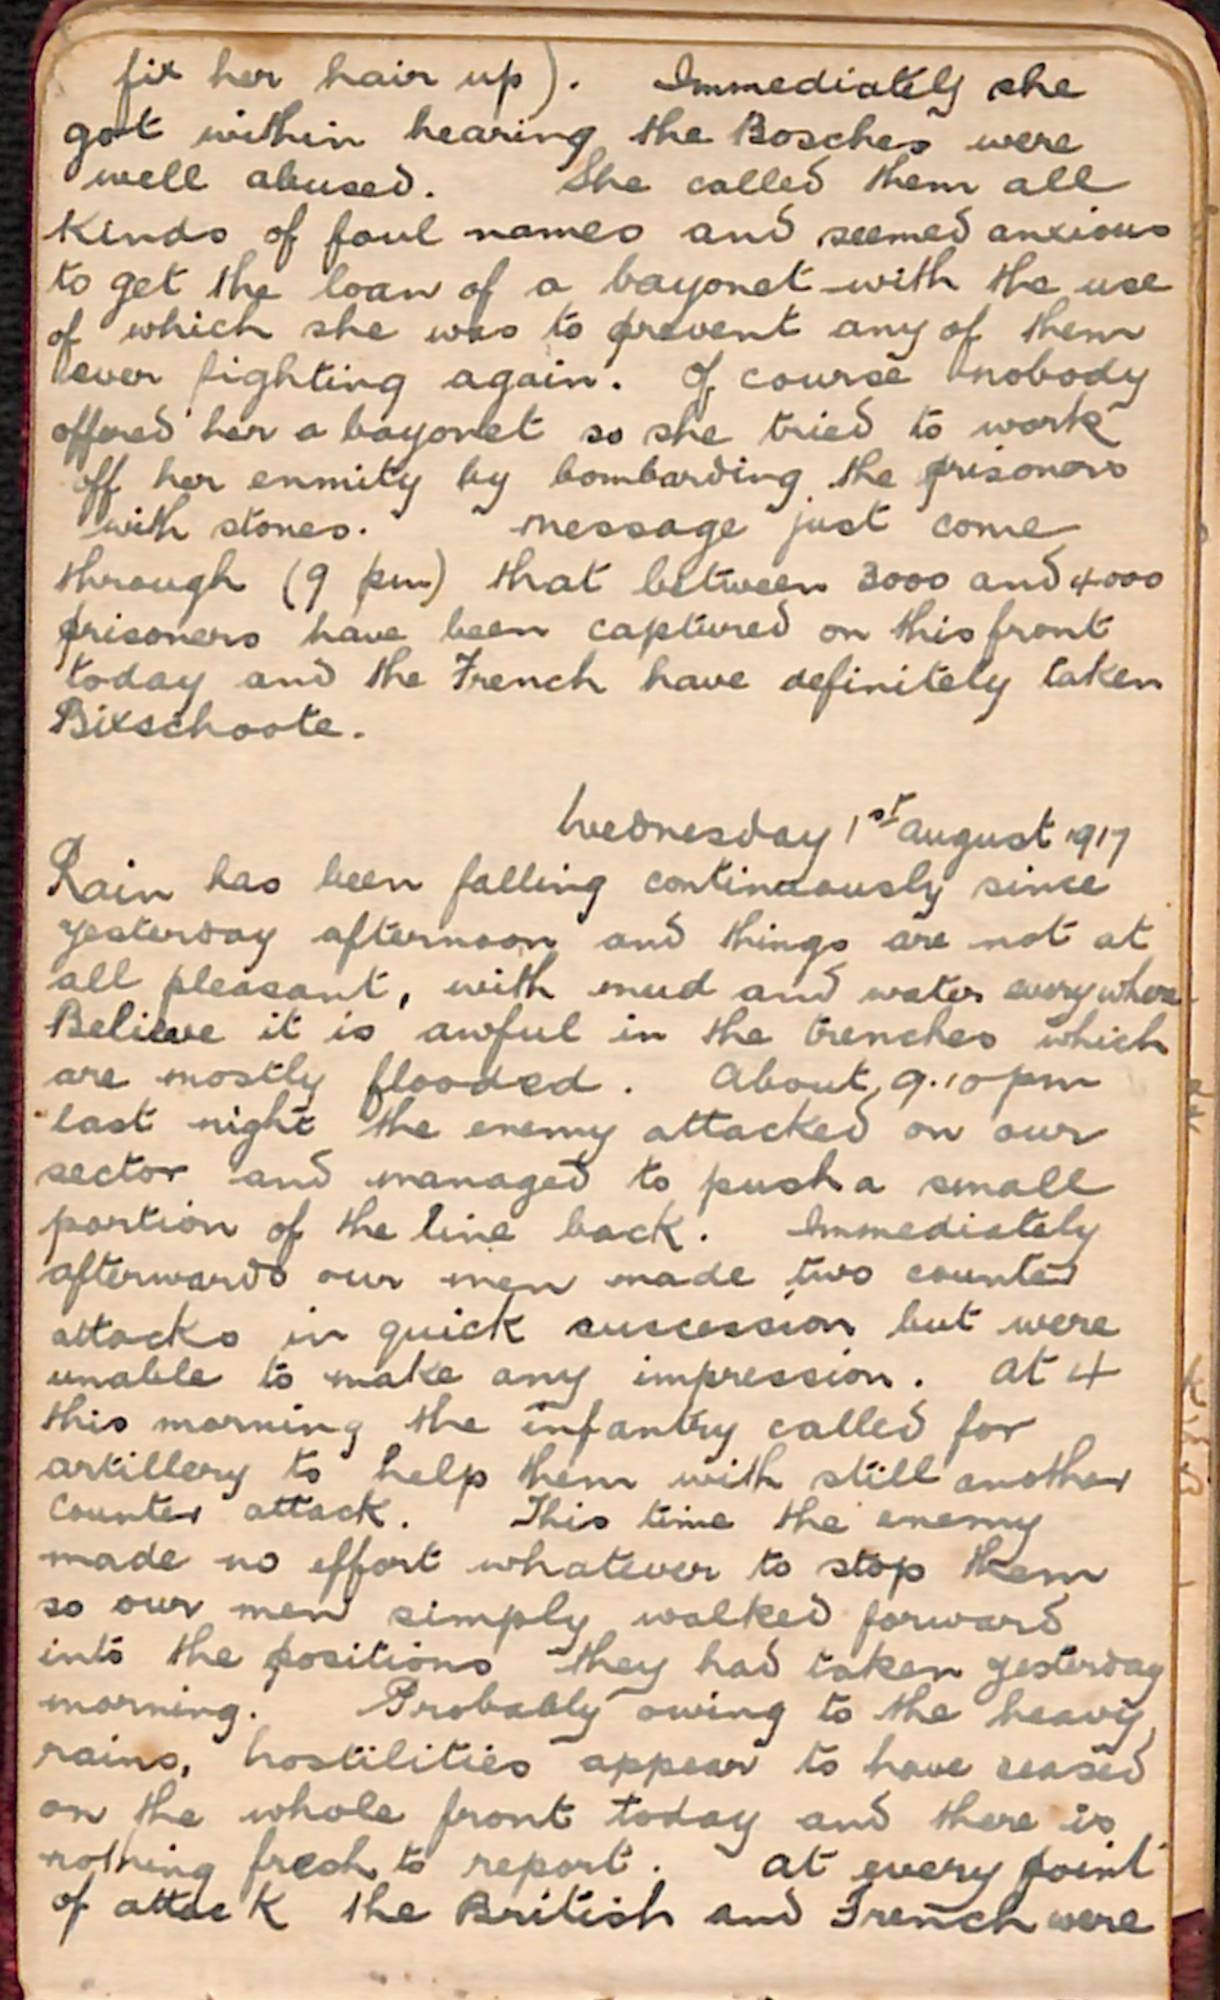 fix her hair up). Immediately she
got within hearing the Bosches were
well abused. She called them all
kinds of foul names and seemed anxious
to get the loan of a bayonet with the use
of which she was to prevent any of them
ever fighting again. Of course nobody
offered her a bayonet so she tried to work
off her enmity by bombarding the prisoners
with stones. Message just come
through (9 pm) that between 3000 and 4000
prisoners have been captured on this front
today and the French have definitely taken
Bixschoote.
Wednesday 1st August 1917
Rain has been falling continuously since
yesterday afternoon and things are not at
all pleasant, with mud and water everywhere.
Believe it is awful in the trenches which
are mostly flooded. About 9.10 pm
last night the enemy attacked on our
sector and managed to push a small
portion of the line back. Immediately
afterwards our men made two counter
attacks in quick succession but were
unable to make any impression. At 4
this morning the infantry called for
artillery to help them with still another
counter attack. This time the enemy
made no effort whatever to stop them
so our men simply walked forward
into the positions they had taken yesterday
morning. Probably owing to the heavy
rains, hostilities appear to have ceased
on the whole front today and there is
nothing fresh to report. At every point
of attack the British and French were